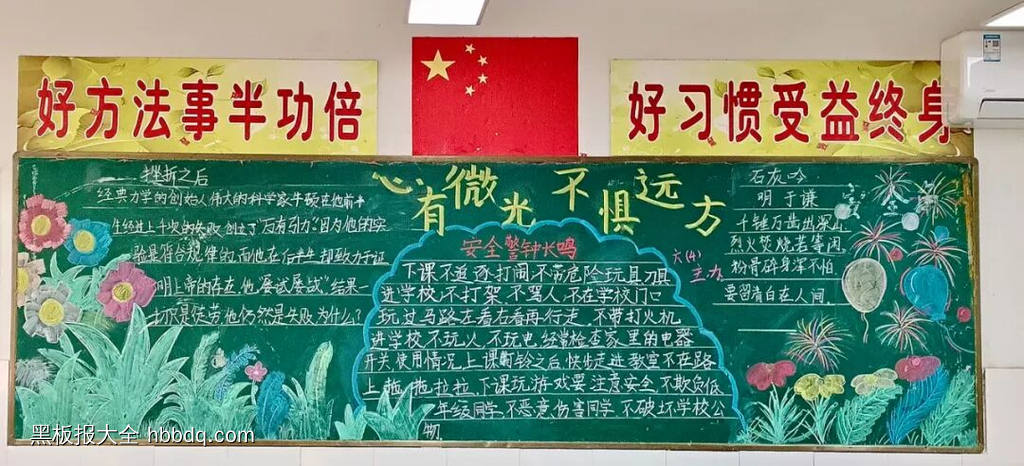 好方法事半功倍
好习惯受益终身
心有微光 不惧远方
挫折之后
经典力学的创始人伟大的科学家牛顿在他前半
生经过上千次的失败,创立了"万有引力"因为他的实
验是符合规律的而他在后半生却致力于证
明上帝的存在,他"屡试屡战"结果一
切只是徒劳他仍然是失败为什么?
安全警钟长鸣
六(4)
下课不追逐打闹不带危险玩具刀具
进学校,不打架,不骂人,不在学校门口
玩,过马路左看右看再行走,不带打火机
进学校不玩火,不玩电,经常检查家里的电器
开关使用情况,上课前铃之后快步走进教室不在路
上拖拖拉拉,下课玩游戏要注意安全不欺负低
年级同学,不恶意伤害同学,不破坏学校公
物
石灰吟
明 于谦
千锤万凿出深山
烈火焚烧若等闲
粉骨碎身浑不怕
要留青白在人间
黑板报大全 hbbdq.com